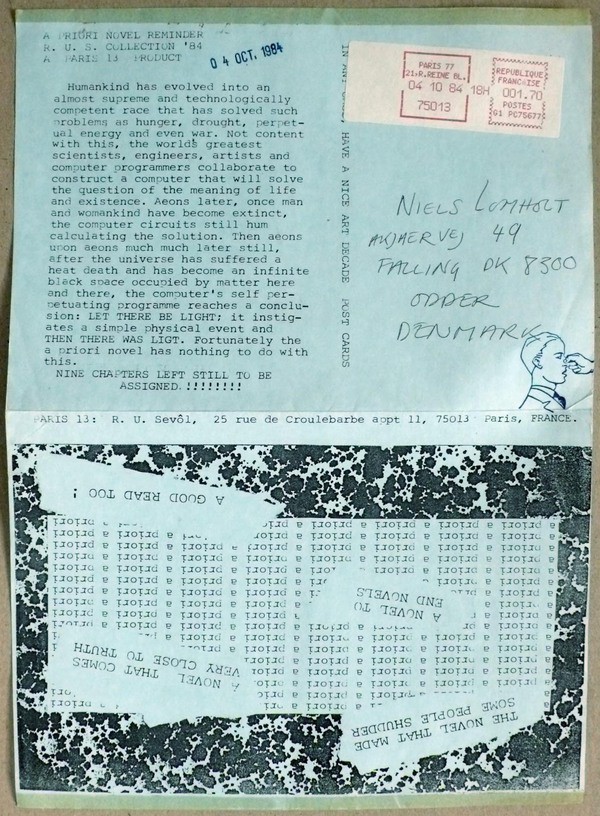 A PRIORI NOVEL REMINDER
R. U. S. COLLECTION '84
A PARIS 13 PRODUCT
04 OCT. 1984
Humankind has evolved into an
almost supreme and technologically
competent race that has solved such
problems as hunger, drought, perpet-
ual energy and even war. Not content
with this, the worlds greatest
scientists, engineers, artists and
computer programmers collaborate to
construct a computer that will solve
the question of the meaning of life
and existence. Aeons later, once man
and womankind have become extinct,
the computer circuits still hum
calculating the solution. Then aeons
upon aeons much much later still,
after the universe has suffered a
heat death and has become an infinite
black space occupied by matter here
and there, the computer's self per-
petuating programme reaches a conclu-
sion: LET THERE BE LIGHT; it instig-
ates a simple physical event and
THEN THERE WAS LIGT. Fortunately the
a priori novel has nothing to do with
this.
NINE CHAPTERS LEFT STILL TO BE
ASSIGNED.!!!!!!!!
HAVE A NICE ART DECADE POST CARDS
PARIS 77
21,R.REINE BL.
04 10 84 18H
75013
REPUBLIQUE
FRANCAISE
001.70
POSTES
G1 PC75677
NIELS LOMHOLT
49
FALLING DK 8300
ODDER
DENMARK
PARIS 13: R. U. Sevôl, 25 rue de Croulebarbe appt 11, 75013 Paris, FRANCE.
THE NOVEL THAT MADE
SOME PEOPLE SHUDDER
A NOVEL THAT COMES
VERY CLOSE TO TRUTH
A NOVEL TO
END NOVELS
A GOOD READ TOO !